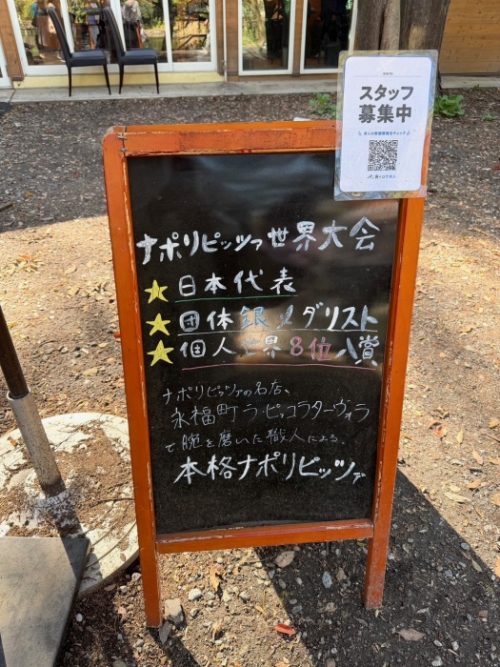 スタッフ
募集中
ナポリピッツァ世界大会
★日本代表
★団体銀メダリスト
★個人世界8位入賞
ナポリピッツァの名店、
永福町ラ・ピッコラターヴォラ
で腕を磨いた職人による、
本格ナポリピッツァ